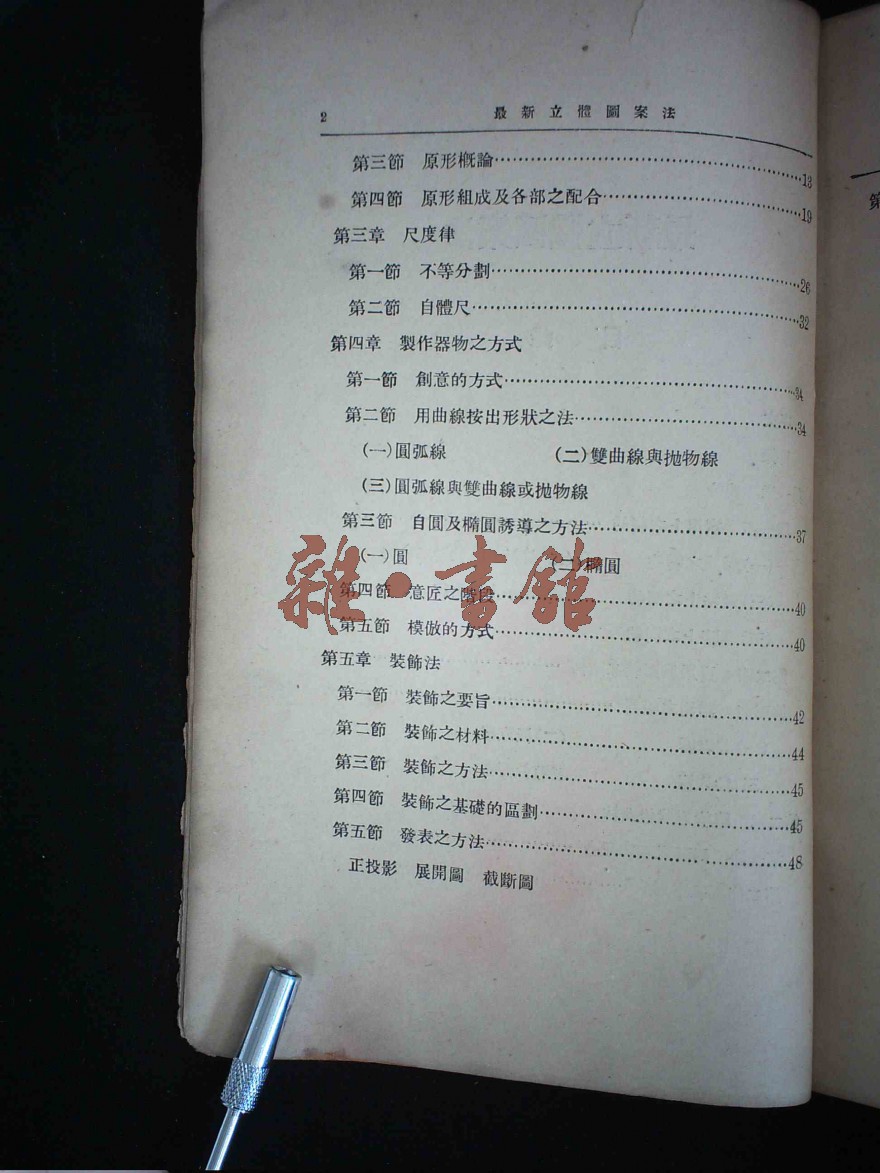 2 最新立體圖案法
第三節 原形概論……13
第四節 原形組成及各部之配合……19
第三章 尺度律
第一節 不等分劃……26
第二節 自體尺……32
第四章 製作器物之方式
第一節 創意的方式……34
第二節 用曲線按出形狀之法……34
(一)圓弧線 (二)雙曲線與拋物線
(三)圓弧線與雙曲線或拋物線
第三節 自圓及橢圓誘導之方法……37
(一)圓 (二)橢圓
第四節 意匠之階段……40
第五節 模倣的方式……40
第五章 裝飾法
第一節 裝飾之要旨……42
第二節 裝飾之材料……44
第三節 裝飾之方法……45
第四節 裝飾之基礎的區劃……45
第五節 發表之方法……48
正投影 展開圖 截斷圖
第
雜·書館